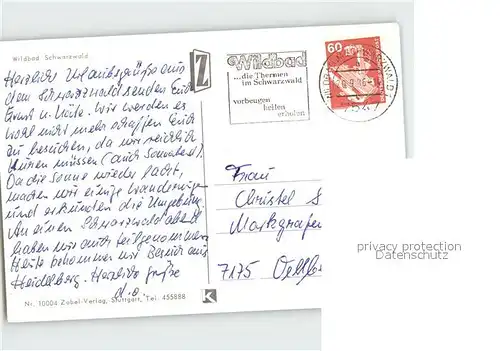 Wildbad Schwarzwald
Herzliche Urlaubsgrüße aus
dem Schwarzwald senden Euch
Ernst u. Käte. Wir werden es
wohl nicht mehr schaffen Euch
zu besuchen, da wir reichlich
müssen (auch Sonnabend).
Da die Sonne wieder lacht,
machen wir einige Wanderungen
und erkunden die Umgebung.
An einem Schwarzwaldabend
haben wir auch teilgenommen.
Heute bekommen wir Besuch aus
Heidelberg. Herzliche Grüße
d.o.
Nr. 10004 Zobel-Verlag, Stuttgart, Tel. 455888
Z
K
Wildbad
...die Thermen
im Schwarzwald
vorbeugen
heilen
erholen
60
Frau
Christel S
Markgrafen
7175
privacy protection
Datenschutz